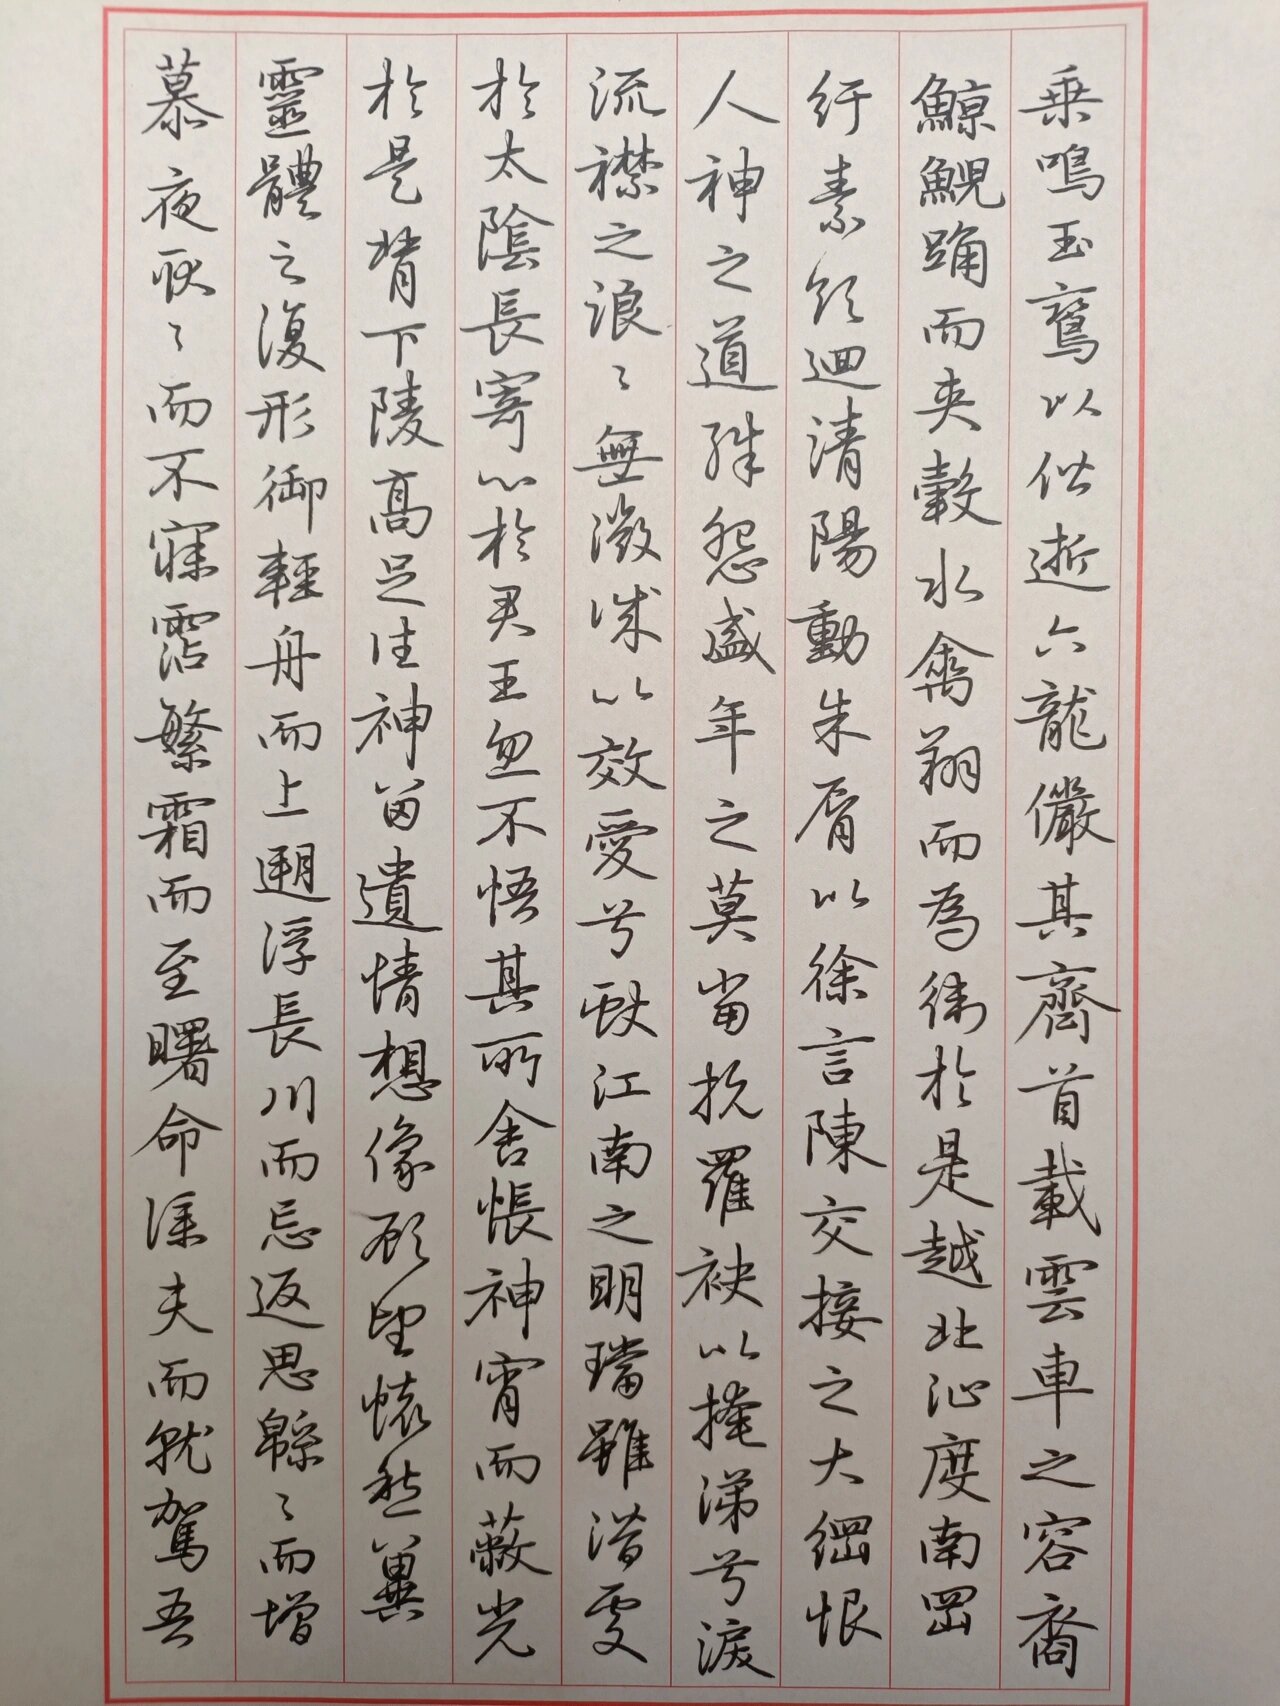 乘鳴玉鸞以偕逝六龍儼其齊首載雲車之容裔
鯨鯢踊而夾轂水禽翔而為衛於是越北沚度南岡
紆素領迴清陽動朱脣以徐言陳交接之大綱恨
人神之道殊怨盛年之莫當抗羅袂以掩涕兮淚
流襟之浪〻無微誠以效愛兮獻江南之明璫雖潛處
於太陰長寄心於君王忽不悟其所舍悵神宵而蔽光
於是背下陵高足往神留遺情想像顧望懷愁冀
靈體之復形御輕舟而上遡浮長川而忘返思緜〻而增
慕夜耿〻而不寐霑繁霜而至曙命僕夫而就駕吾